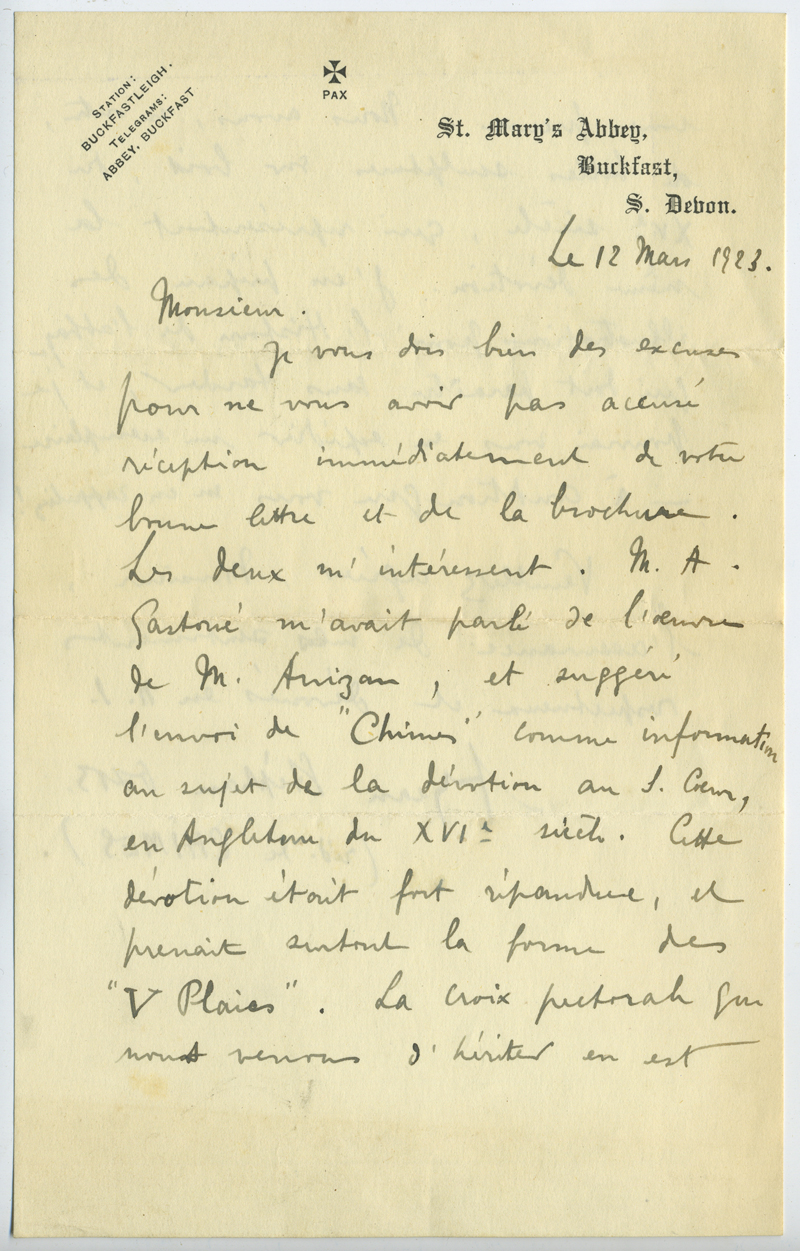 STATION:
BUCKFASTLEIGH.
TELEGRAMS:
ABBEY, BUCKFAST
PAX
St. Mary's Abbey,
Buckfast,
S. Devon.
Le 12 Mars 1923.
Monsieur.
Je vous dois bien des excuses
pour ne vous avoir pas accusé
réception immédiatement de votre
bonne lettre et de la brochure.
Les deux m'intéressent. M. A.
Gastoué m'avait parlé de l'œuvre
de M. Anizan, et suggéré
l'envoi de "Chimes" comme information
au sujet de la dévotion au S. Cœur,
en Angleterre du XVIe siècle. Cette
dévotion était fort répandue, et
prenait surtout la forme des
"V Plaies". La croix pectorale que
nous venons d'hériter en est